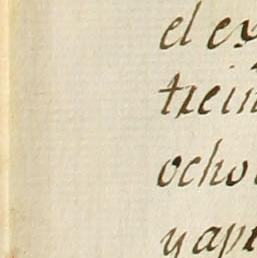 el ex
trein
ocho
yapr